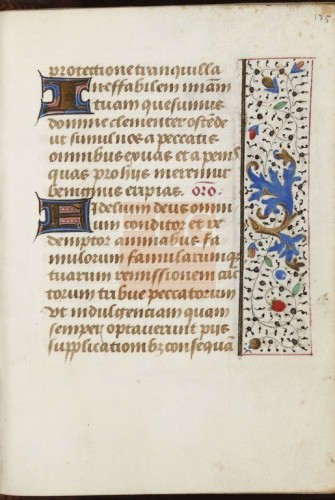 175
protectione tranquilla
Ineffabilem miam
tuam quesumus
domine clementer ostēde
ut simul nos a peccatis
omnibus exuas et a penis
quas pro hijs meremur
benignus eripias. oro.
Fidelium deus omni
um conditor et re
demptor animabus fa
mulorum famularumq
tuarum remissionem cūc
torum tribue peccatorum
Vt indulgenciam quam
semper optauerunt pijs
supplicationibz consequā